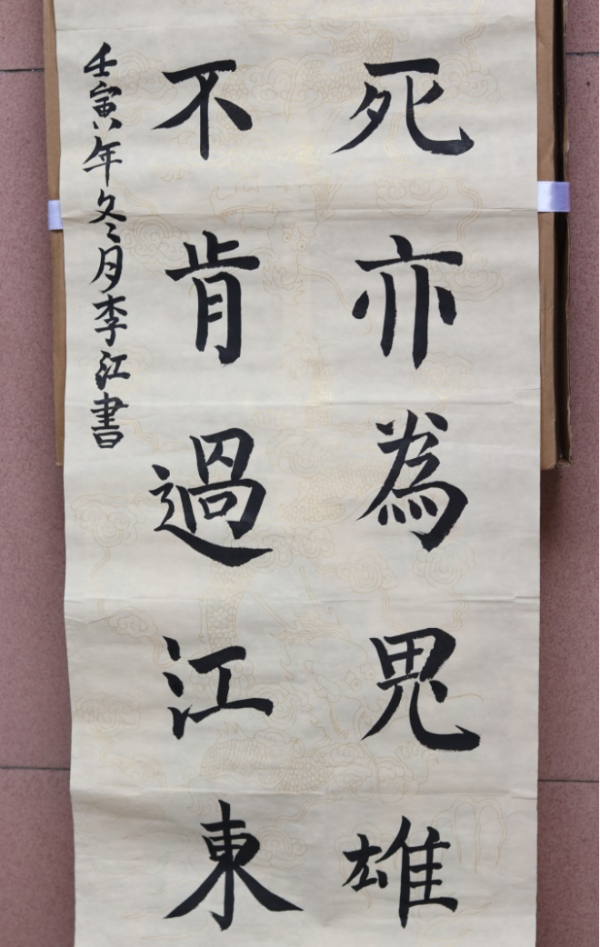 死亦為鬼雄
不肯過江東
壬寅年冬月李江書